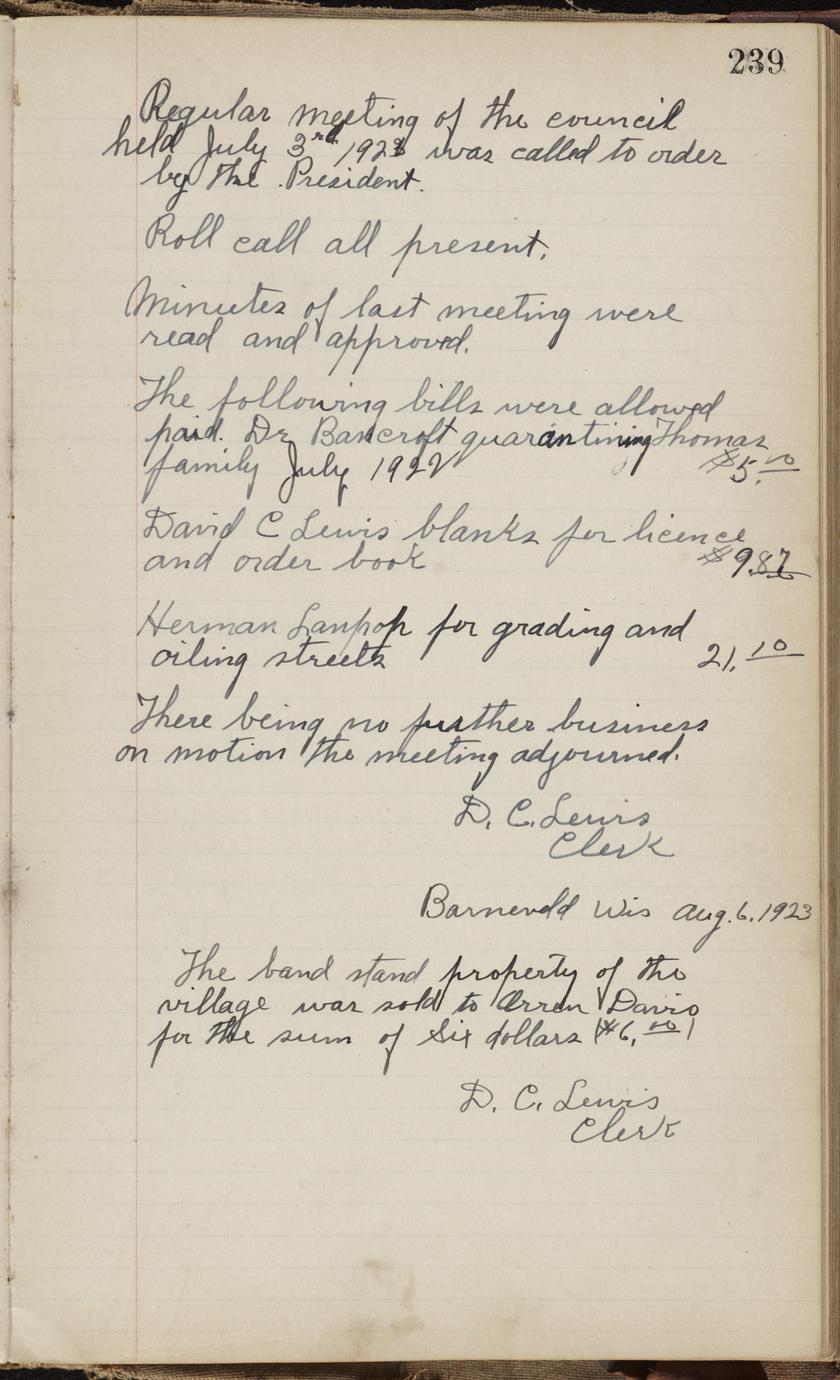 239
Regular meeting of the council
held July 3rd 1923 was called to order
by the President.
Roll call all present.
Minutes of last meeting were
read and approved.
The following bills were allowed
paid. Dr Bancroft quarantining Thomas
family July 1922 $5.00
David C Lewis blanks for licence
and order book $9.87
Herman Lanpop for grading and
oiling streets 21.10
There being no further business
on motion the meeting adjourned.
D. C. Lewis
Clerk
Barneveld Wis Aug. 6, 1923
The band stand property of the
village was sold to Orren Davis
for the sum of Six dollars ($6.00)
D. C. Lewis
Clerk